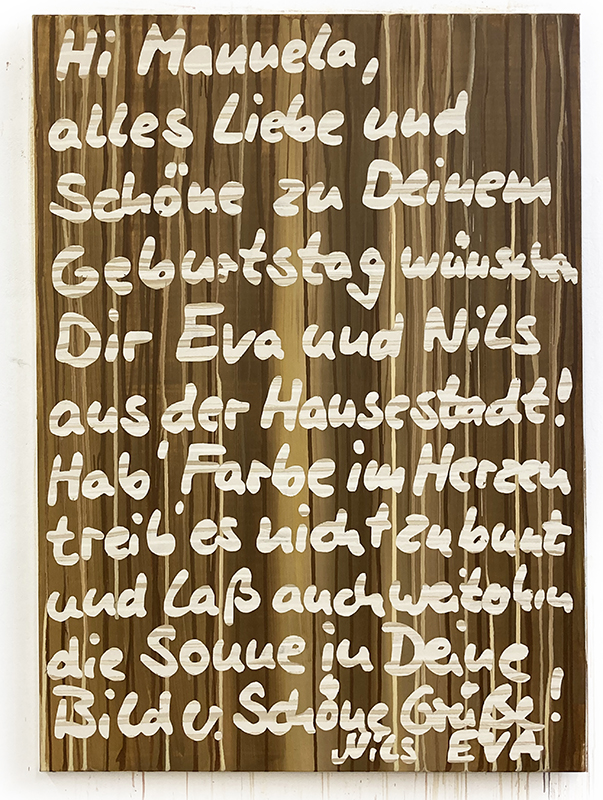 Hi Manuela,
alles Liebe und
Schöne zu Deinem
Geburtstag wünschen
Dir Eva und Nils
aus der Hansestadt!
Hab' Farbe im Herzen
treib' es nicht zu bunt
und Laß auch weiterhin
die Sonne in Deine
Bild u. Schöne Grüße!
Nils EVA